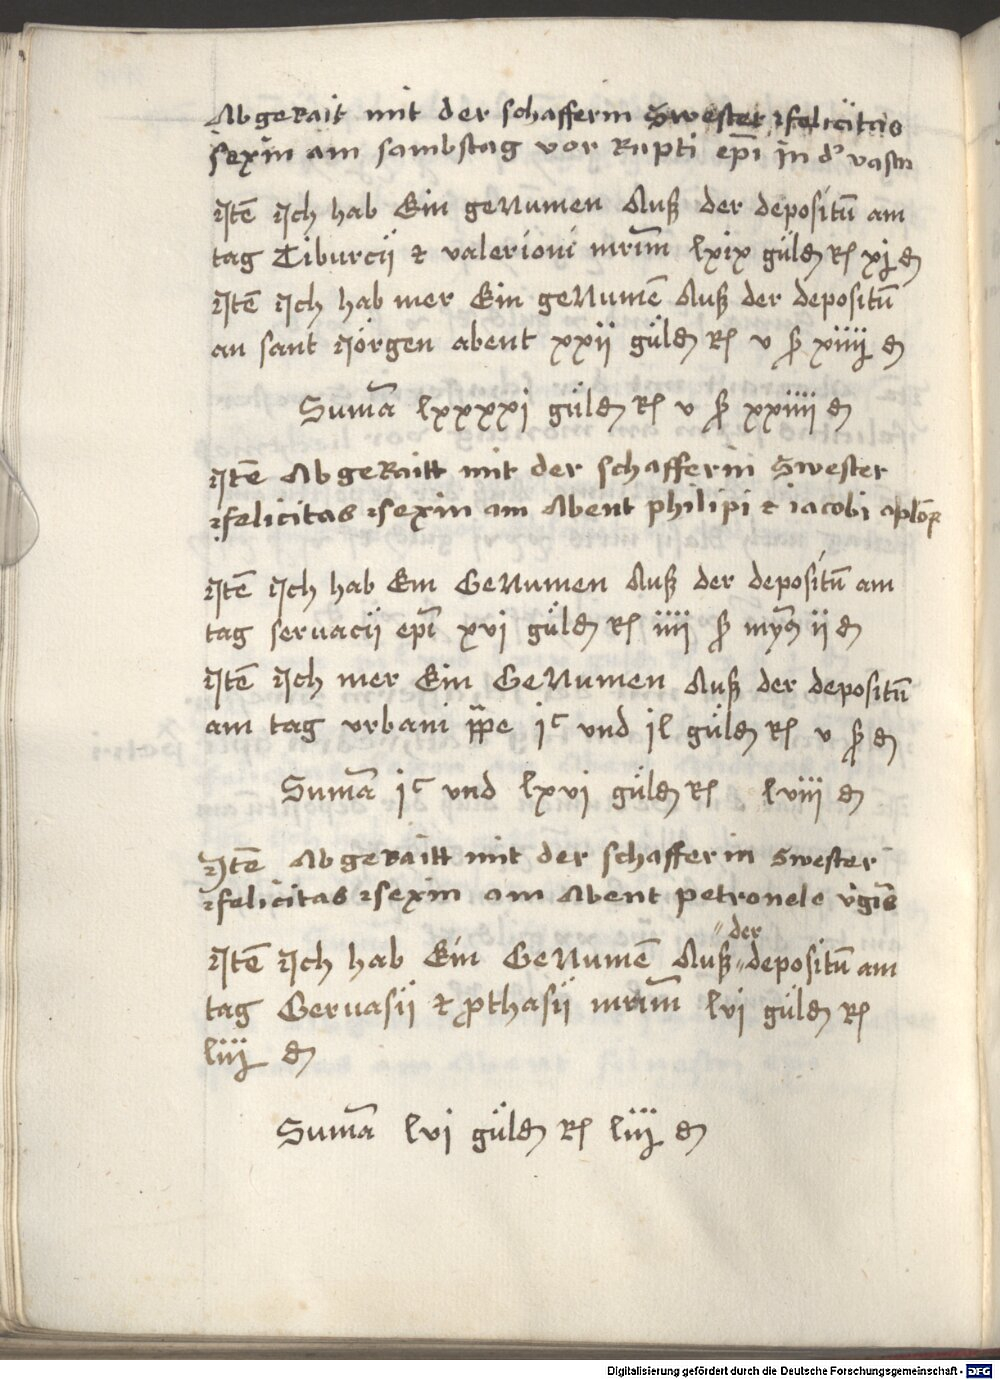 Abgerait mit der schafferin Swester felicitas
sexin am sambstag vor Rupti ep̄i in d' vastn
Jtē Jch hab Ein genumen Auß der depositū am
tag Tiburcij et valeriani mrīm lxix güld₰ Rſ xj ₰
Jtē Jch hab mer Ein genumē Auß der depositū
an sant Jörgen abent xxij güld₰ Rſ v ſ xiiij ₰
Sum̄a lxxxxi güld₰ Rſ v ſ xxiiii ₰
Jtē Abgeraitt mit der schafferin Swester
felicitas sexin am Abent philipi et iacobi aplōꝝ
Jtē Jch hab Ein Genumen Auß der depositū am
tag seruacij ep̄i xvi güld₰ Rſ iiii ſ myn9 ii ₰
Jtē Jch mer Ein Genumen Auß der depositū
am tag vrbani ꝑpe jc vnd il güld₰ Rſ v ſ ₰
Sum̄a jc vnd lxvi güld₰ Rſ lviii ₰
Jtē Abgeraitt mit der schafferin swester
felicitas sexin am Abent petronele v'gīs
Jtē Jch hab Ein Genumē Auß der depositū am
tag Geruasij et ꝓthasij mrīm lvi güld₰ Rſ
liij ₰
Sum̄a lvi güld₰ Rſ liij ₰
Digitalisierung gefördert durch die Deutsche Forschungsgemeinschaft - DFG